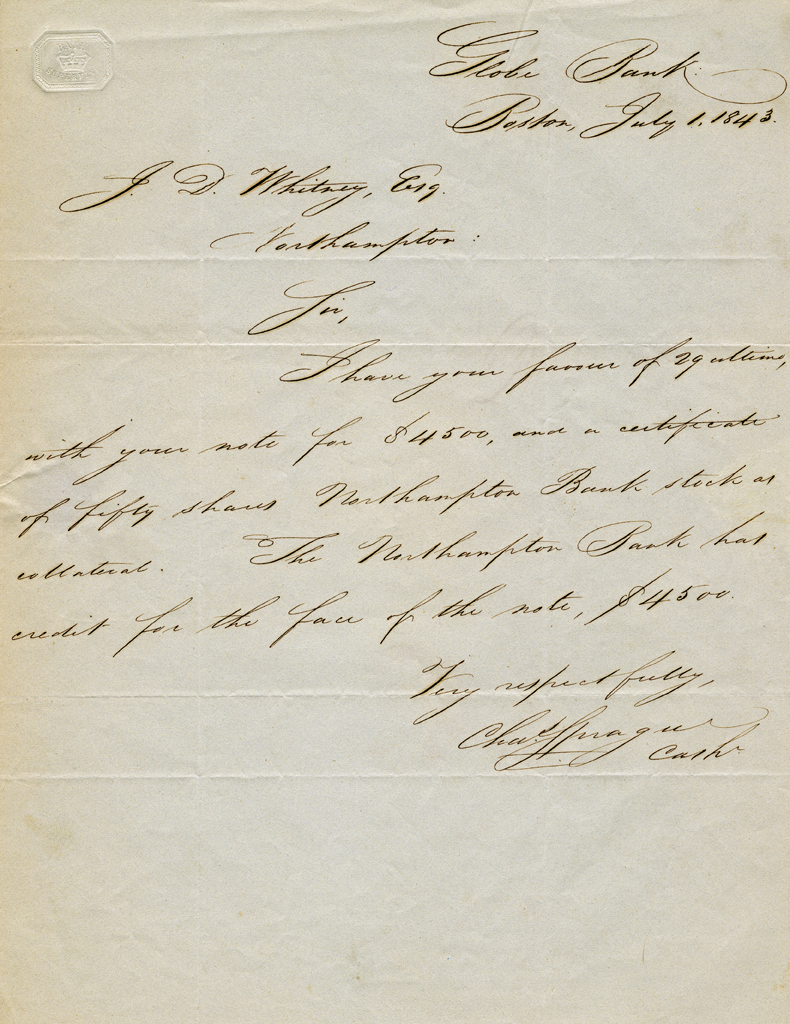 Globe Bank:
Boston, July 1. 1843.
J. D. Whitney, Esq.
Northampton:
Sir,
I have your favour of 29 ultimo,
with your note for $4500, and a certificate
of fifty shares Northampton Bank stock as
collateral. The Northampton Bank has
credit for the face of the note, $4500.
Very respectfully,
Chas Sprague
Cashr